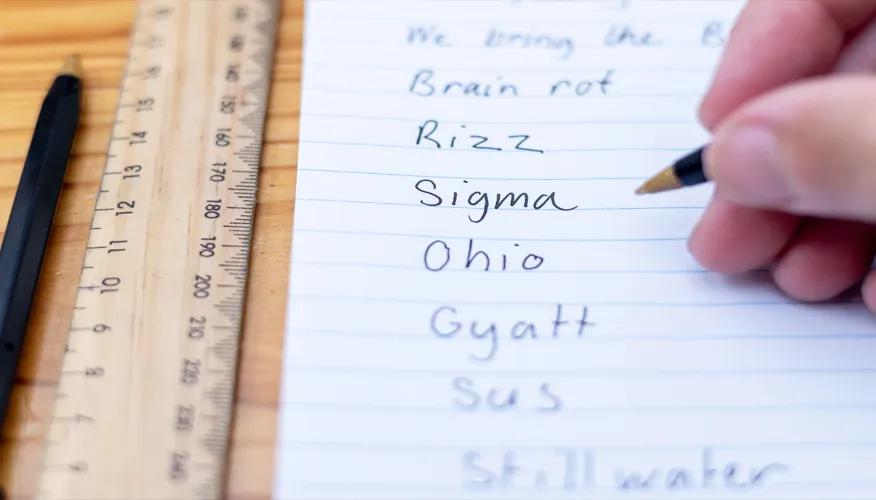 We bring the B
Brain rot
Rizz
Sigma
Ohio
Gyatt
Sus
Still water
18
17
16
15
14
13
12
11
10
9
8
7
6
140
150
160
170
180
190
200
210
220
230
240